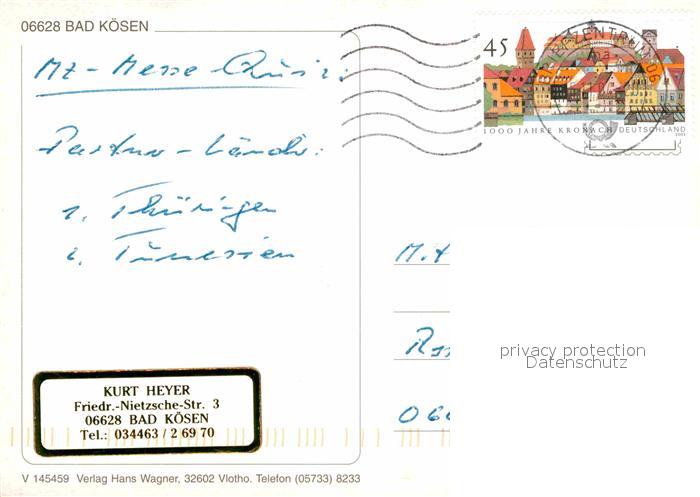 06628 BAD KÖSEN
MZ-Messe-Quiz:
Partner-Länder:
1. Thüringen
2. Tunesien
KURT HEYER
Friedr.-Nietzsche-Str. 3
06628 BAD KÖSEN
Tel.: 034463 / 2 69 70
V 145459 Verlag Hans Wagner, 32602 Vlotho. Telefon (05733) 8233
45
1000 JAHRE KRONACH DEUTSCHLAND
BRIEFZENTRUM 06
privacy protection
Datenschutz